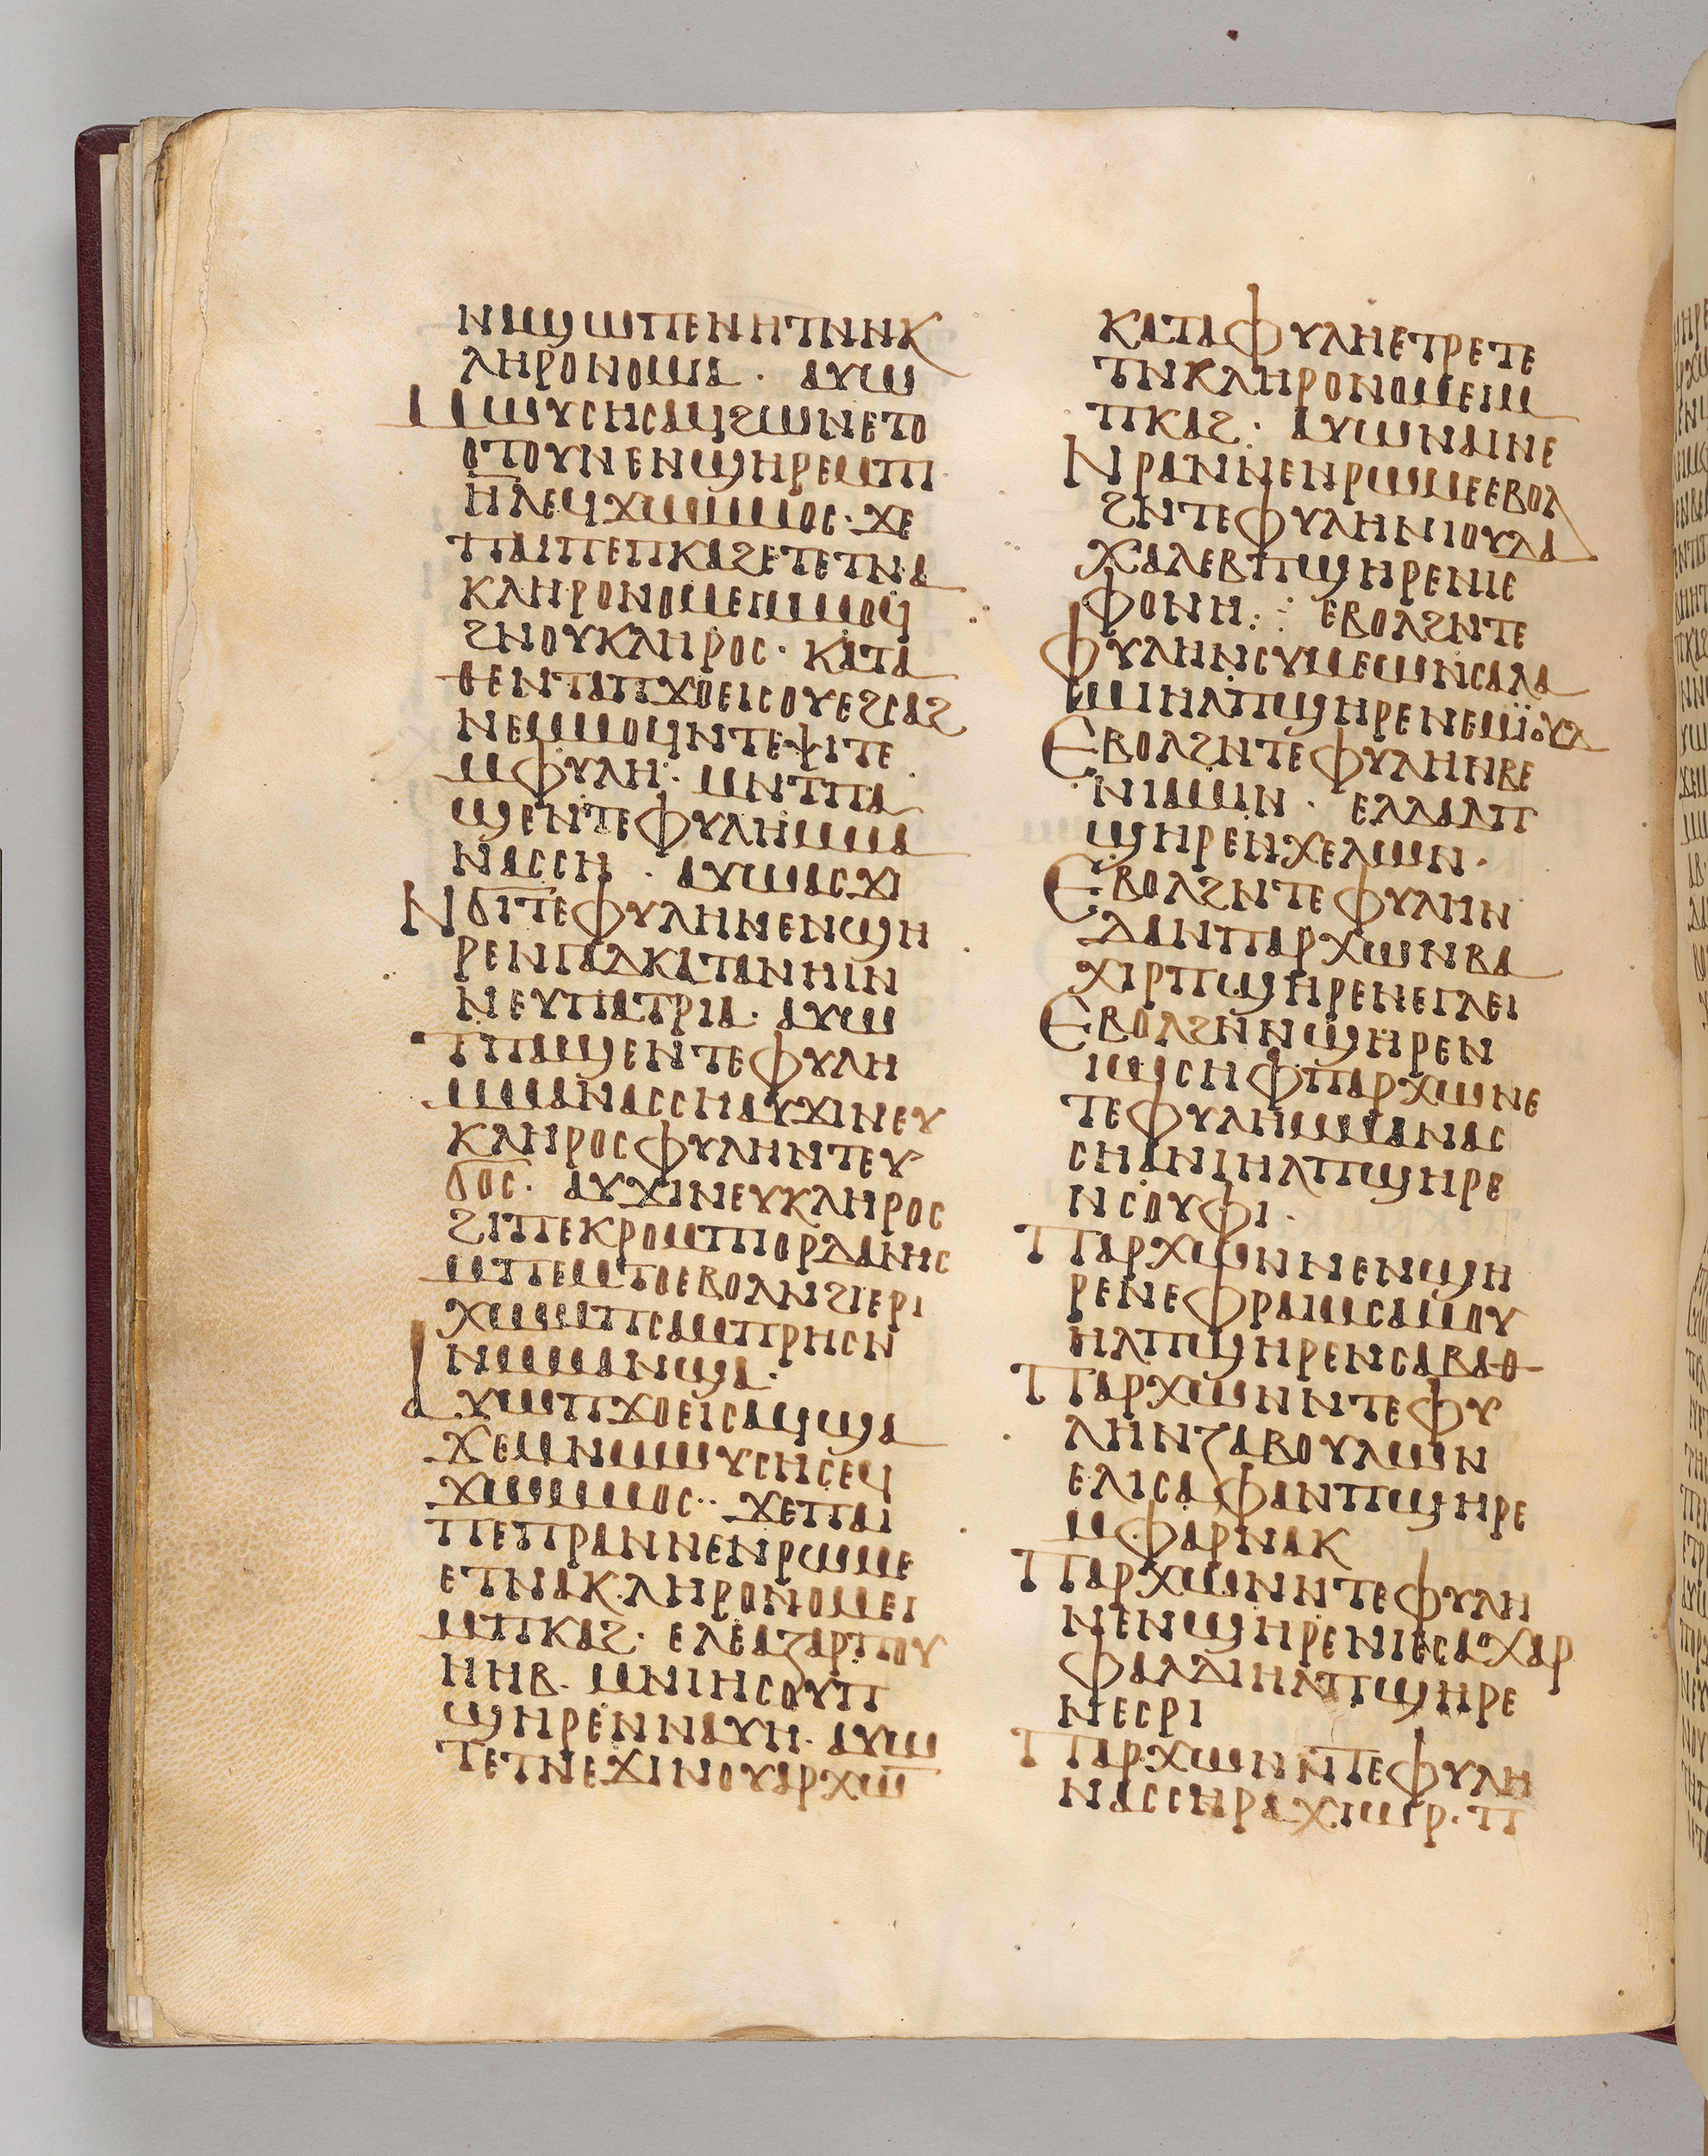 ⲛⲁϣⲱⲡⲉⲛⲏⲧⲛⲛⲕ
ⲗⲏⲣⲟⲛⲟⲙⲓⲁ · ⲁⲩⲱ
ⲙⲱⲩⲥⲏⲥⲁϥϩⲱⲛⲉⲧⲟ
ⲟⲧⲟⲩⲛⲉⲛϣⲏⲣⲉⲙⲡⲓ
ⲏⲗⲉϥϫⲱⲙⲙⲟⲥ · ϫⲉ
ⲡⲁⲓⲡⲉⲡⲕⲁϩⲉⲧⲉⲧⲛⲁ
ⲕⲗⲏⲣⲟⲛⲟⲙⲉⲓⲙⲙⲟϥ
ϩⲛⲟⲩⲕⲗⲏⲣⲟⲥ · ⲕⲁⲧⲁ
ⲑⲉⲛⲧⲁⲡϫⲟⲉⲓⲥⲟⲩⲉϩⲥⲁϩ
ⲛⲉⲙⲙⲟϥⲛⲧⲉⲯⲓⲧⲉ
ⲙⲫⲩⲗⲏ · ⲙⲛⲧⲡⲁ
ϣⲉⲛⲧⲉⲫⲩⲗⲏⲙⲙⲁ
ⲛⲁⲥⲥⲏ · ⲁⲩⲱⲁⲥϫⲓ
ⲛϭⲓⲧⲉⲫⲩⲗⲏⲛⲉⲛϣⲏ
ⲣⲉⲛⲅⲁⲇⲕⲁⲧⲁⲛⲏⲓⲛ
ⲛⲉⲩⲡⲁⲧⲣⲓⲁ · ⲁⲩⲱ
ⲧⲡⲁϣⲉⲛⲧⲉⲫⲩⲗⲏ
ⲙⲙⲁⲛⲁⲥⲥⲏⲁⲩϫⲓⲛⲉⲩ
ⲕⲗⲏⲣⲟⲥⲫⲩⲗⲏⲛⲧⲉⲩ
ϭⲟⲥ · ⲁⲩϫⲓⲛⲉⲩⲕⲗⲏⲣⲟⲥ
ϩⲓⲡⲉⲕⲣⲟⲙⲡⲓⲟⲣⲇⲁⲛⲏⲥ
ⲙⲡⲉⲙⲧⲟⲉⲃⲟⲗⲛϩⲓⲉⲣⲓ
ⲭⲱⲙⲡⲥⲁⲙⲡⲣⲏⲥⲛ
ⲛⲙⲙⲁⲛϣⲁ ·
ⲁⲩⲱⲡϫⲟⲉⲓⲥⲁϥϣⲁ
ϫⲉⲙⲛⲙⲱⲩⲥⲏⲥⲉϥ
ϫⲱⲙⲙⲟⲥ ·· ϫⲉⲡⲁⲓ
ⲡⲉⲡⲣⲁⲛⲛⲉⲛⲣⲱⲙⲉ
ⲉⲧⲛⲁⲕⲗⲏⲣⲟⲛⲟⲙⲉⲓ
ⲙⲡⲕⲁϩ · ⲉⲗⲉⲁⲍⲁⲣⲡⲟⲩ
ⲏⲏⲃ · ⲙⲛⲓⲏⲥⲟⲩⲡ
ϣⲏⲣⲉⲛⲛⲁⲩⲏ · ⲁⲩⲱ
ⲧⲉⲧⲛⲉϫⲓⲛⲟⲩⲁⲣⲭⲱ̅
ⲕⲁⲧⲁⲫⲩⲗⲏⲉⲧⲣⲉⲧⲉ
ⲧⲛⲕⲗⲏⲣⲟⲛⲟⲙⲉⲓⲙ
ⲡⲕⲁϩ · ⲁⲩⲱⲛⲁⲓⲛⲉ
ⲛⲣⲁⲛⲛⲉⲛⲣⲱⲙⲉⲉⲃⲟⲗ
ϩⲛⲧⲉⲫⲩⲗⲏⲛⲓⲟⲩⲇⲁ
ⲭⲁⲗⲉⲃⲡϣⲏⲣⲉⲛⲓⲉ
ⲫⲟⲛⲏ : · ⲉⲃⲟⲗϩⲛⲧⲉ
ⲫⲩⲗⲏⲛⲥⲩⲙⲉⲱⲛⲥⲁⲗⲁ
ⲙⲓⲏⲗⲡϣⲏⲣⲉⲛⲉⲙⲓ̈ⲟⲩⲇ
ⲉⲃⲟⲗϩⲛⲧⲉⲫⲩⲗⲏⲛⲃⲉ
ⲛⲓⲁⲙⲓⲛ · ⲉⲗⲇⲁⲇⲡ
ϣⲏⲣⲉⲛⲭⲉⲗⲱⲛ ·
ⲉⲃⲟⲗϩⲛⲧⲉⲫⲩⲗⲏⲛ
ⲇⲁⲛⲡⲁⲣⲭⲱⲛⲃⲁ
ⲭⲓⲣⲡϣⲏⲣⲉⲛⲉⲅⲗⲉⲓ
ⲉⲃⲟⲗϩⲛⲛϣⲏⲣⲉⲛ
ⲓⲱⲥⲏⲫⲡⲁⲣⲭⲱⲛⲉ
ⲧⲉⲫⲩⲗⲏⲙⲙⲁⲛⲁⲥ
ⲥⲏⲁⲛⲓⲏⲗⲡϣⲏⲣⲉ
ⲛⲥⲟⲩⲫⲓ ·
ⲡⲁⲣⲭⲱⲛⲛⲉⲛϣⲏ
ⲣⲉⲛⲉⲫⲣⲁⲓⲙⲥⲁⲙⲟⲩ
ⲏⲗⲡϣⲏⲣⲉⲛⲥⲁⲃⲁⲑ
ⲡⲁⲣⲭⲱⲛⲛⲧⲉⲫⲩ
ⲗⲏⲛⲍⲁⲃⲟⲩⲗⲱⲛ
ⲉⲗⲓⲥⲁⲫⲁⲛⲡϣⲏⲣⲉ
ⲙⲫⲁⲣⲛⲁⲕ
ⲡⲁⲣⲭⲱⲛⲛⲧⲉⲫⲩⲗⲏ
ⲛⲉⲛϣⲏⲣⲉⲛⲓⲉⲥⲁⲭⲁⲣ
ⲫⲁⲗⲇⲓⲏⲗⲡϣⲏⲣⲉ
ⲛⲉⲥⲣⲓ
ⲡⲁⲣⲭⲱⲛⲛⲧⲉⲫⲩⲗⲏ
ⲛⲁⲥⲥⲏⲣⲁⲭⲓⲱⲣ · ⲡ